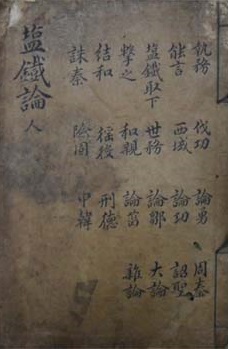 塩鐵論 人
執務 伐功 論勇 周秦
能言 西域 論功 詔聖
塩鐵取下 世務 論鄒 大論
擊之 和親 論菑 雜論
结和 徭役 刑德
誅秦 險固 申韓